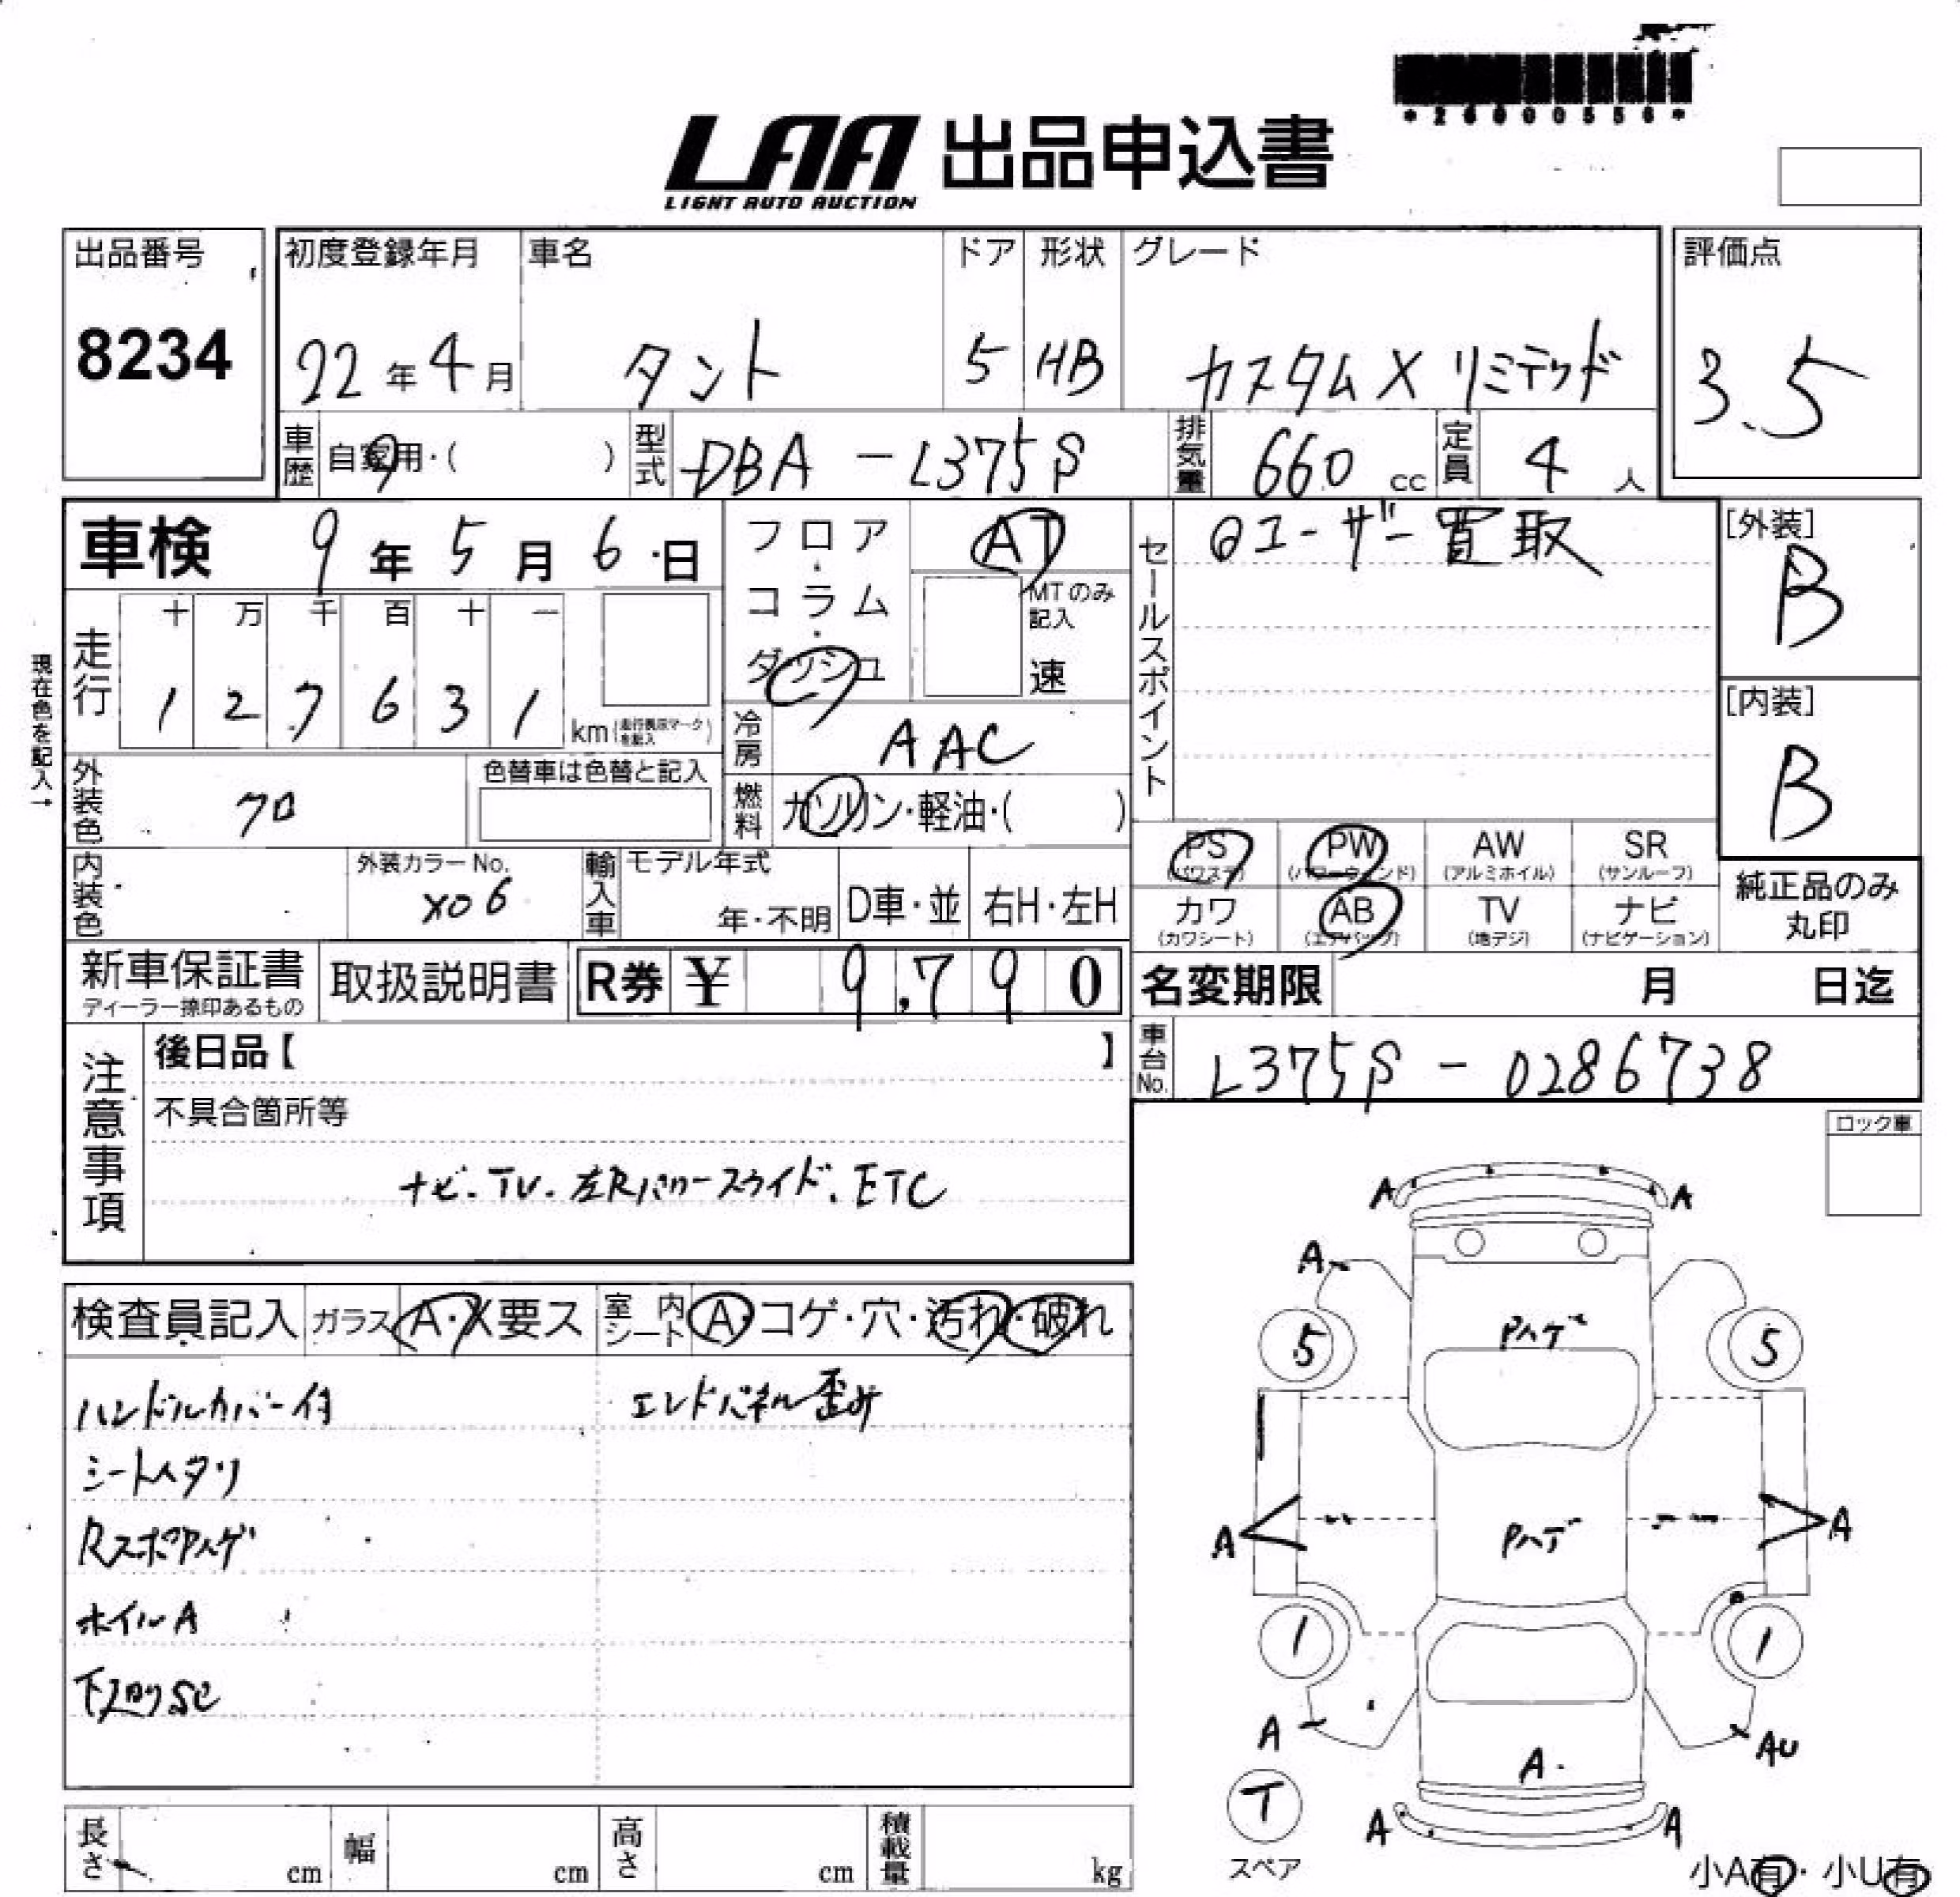 *26000550*
LAA 出品申込書
LIGHT AUTO AUCTION
出品番号
8234
初度登録年月
22年4月
車名
タント
ドア
5
形状
HB
グレード
カスタムX リミテッド
評価点
3.5
車歴 自家用・( )
型式 DBA-L375S
排気量 660 cc
定員 4 人
車検 9年5月6日
走行
十 万 千 百 十 一
1 2 7 6 3 1
km(走行表示マークを記入)
現在色を記入→
外装色 クロ
色替車は色替と記入
内装色
外装カラーNo.
X06
輸入車
モデル年式
年・不明
D車・並
右H・左H
フロア・コラム・ダッシュ
AT
MTのみ記入
速
冷房 AAC
燃料 ガソリン・軽油・( )
セールスポイント
ユーザー買取
[外装]
B
[内装]
B
PS
(パワステ)
PW
(パワーウィンド)
AW
(アルミホイル)
SR
(サンルーフ)
カワ
(カワシート)
AB
(エアバッグ)
TV
(地デジ)
ナビ
(ナビゲーション)
純正品のみ
丸印
新車保証書
ディーラー捺印あるもの
取扱説明書
R券 ¥ 9,790
名変期限 月 日迄
車台No. L375S-0286738
注意事項
後日品【 】
不具合箇所等
ナビ.TV.左Rパワースライド.ETC
ロック車
検査員記入
ガラス A・X要ス
室内シート A・コゲ・穴・汚れ・破れ
ハンドルカバー付
エンドパネル歪み
シートヘタリ
RスポPハゲ
ホイルA
下廻りSC
A A
A
Pハゲ
5 5
A A
Pハゲ
1 1
A AU
A.
T
スペア
A A
小A有・小U有
長さ cm
幅 cm
高さ cm
積載量 kg